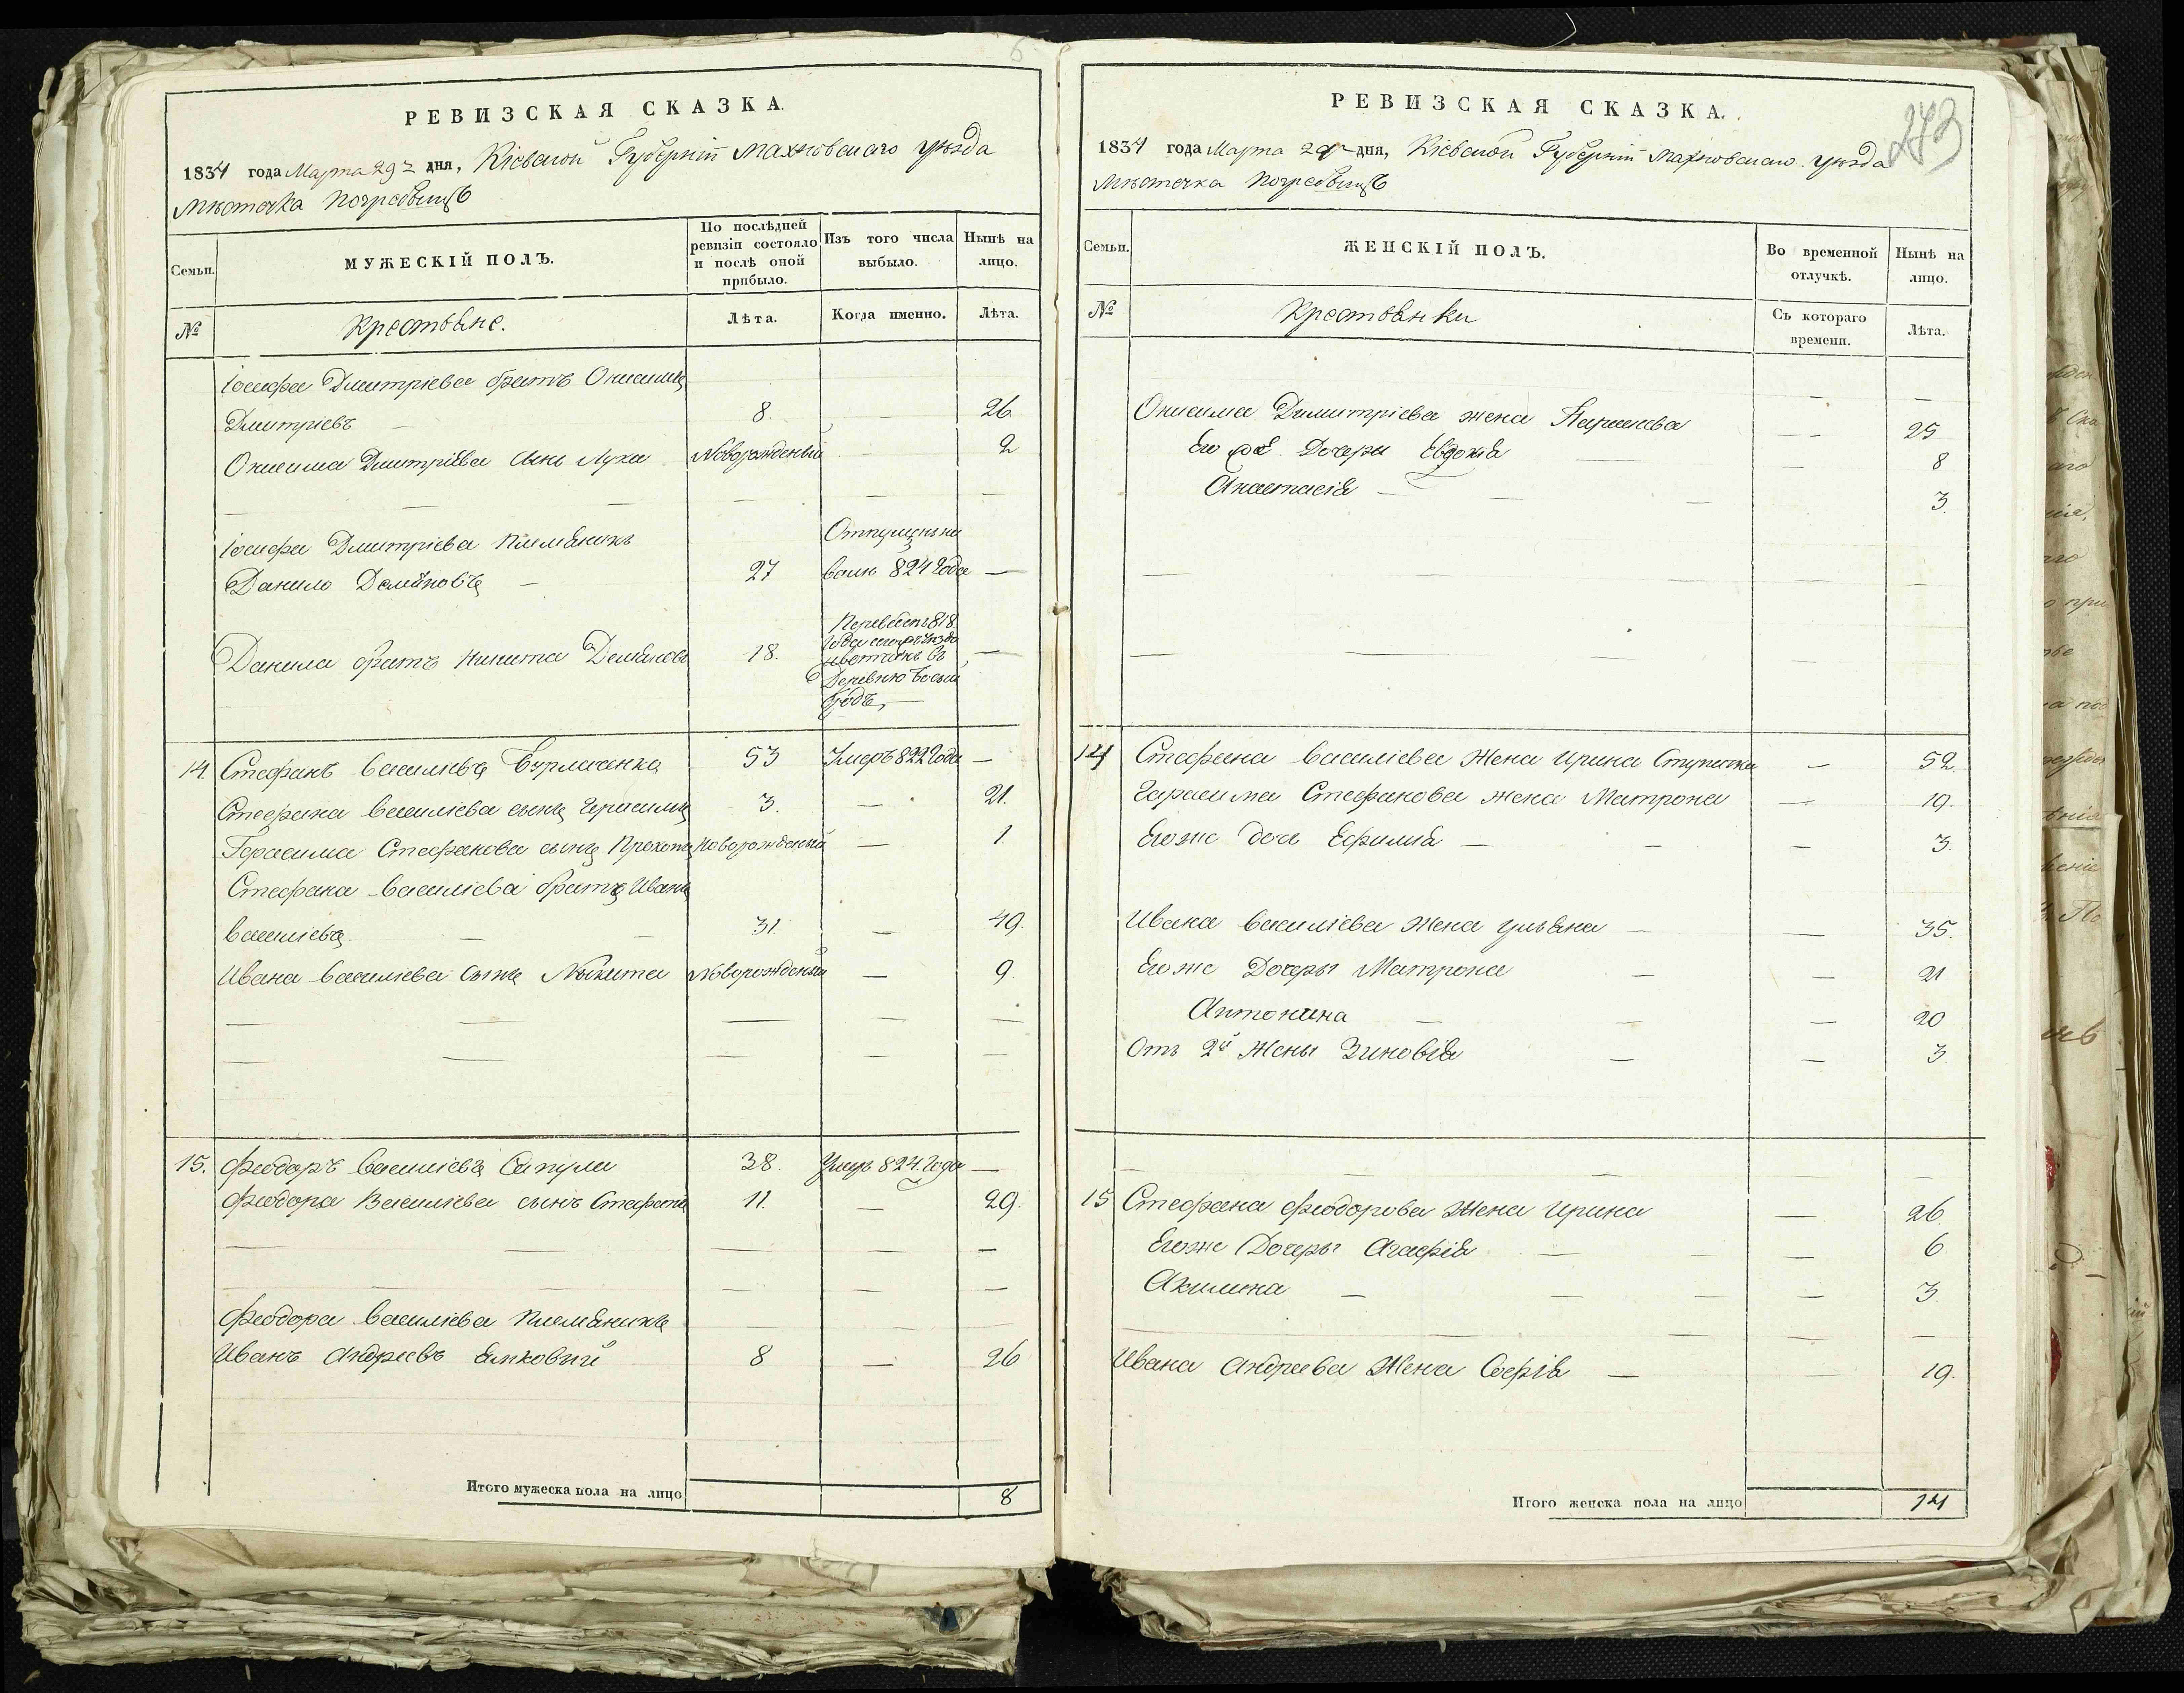 РЕВИЗСКАЯ СКАЗКА.
1834 года Марта 29 дня, Кіевской Губерніи Махновскаго уѣзда
Мѣстечка Погребищъ
Семьи.
МУЖЕСКІЙ ПОЛЪ.
По послѣдней ревизіи состояло и послѣ оной прибыло.
Изъ того числа выбыло.
Нынѣ на лицо.
№
Крестьяне.
Лѣта.
Когда именно.
Лѣта.
Іосифа Дмитріева братъ Онисимъ
Дмитріевъ — 8. — 26
Онисима Дмитріева сынъ Лука Новорожденный — 2
— — — — —
Іосифа Дмитріева племяникъ Отпущенъ на
Данило Демяновъ — 27 волю 824 года —
Данила братъ Никита Демяновъ 18. Переведенъ 818
года
въ —
Деревню
14. Стефанъ Василіевъ 53 Умеръ 822 года —
Стефана Василіева сынъ Герасимъ 3. — 21.
Герасима Стефанова сынъ Прокопъ новорожденный — 1
Стефана Василіева братъ Иванъ
Василіевъ. — — 31 — 49.
Ивана Василіева сынъ Никита Новорожденный — 9.
— — — — —
— — — — —
15. Феодоръ Василіевъ Сапула 38. Умеръ 824. года —
Феодора Василіева сынъ Стефанъ 11. — 29.
— — — — —
— — — — —
Феодора Василіева племяникъ — — —
Иванъ Андреевъ 8 — 26
Итого мужеска пола на лицо 8
273
РЕВИЗСКАЯ СКАЗКА.
1834 года Марта 29 дня, Кіевской Губерніи Махновскаго уѣзда
Мѣстечка Погребищъ
Семьи.
ЖЕНСКІЙ ПОЛЪ.
Во временной отлучкѣ.
Нынѣ на лицо.
№
Крестьянки
Съ котораго времени.
Лѣта.
— —
Онисима Димитріева жена — — 25
Его Дочеры Евдокія — — 8
Анастасія — — — 3.
— — — —
— — — —
14 Стефана Василіева Жена Ирина — 52.
Герасима Стефанова жена Матрона — 19.
Егоже доч Ефимія — — — 3.
Ивана Василіева Жена Ульяна — — 35.
Егоже Дочеры Матрона — — 21
Антонина — — — 20
Отъ 2й Жены Зиновія — — 3.
— — — — —
15 Стефана Феодорова Жена Ирина — 26
Егоже Дочеры Агафія — — — 6
Акилина — — — — 3.
— — — — —
Ивана Андреева Жена Софія — — — 19.
Итого женска пола на лицо 14